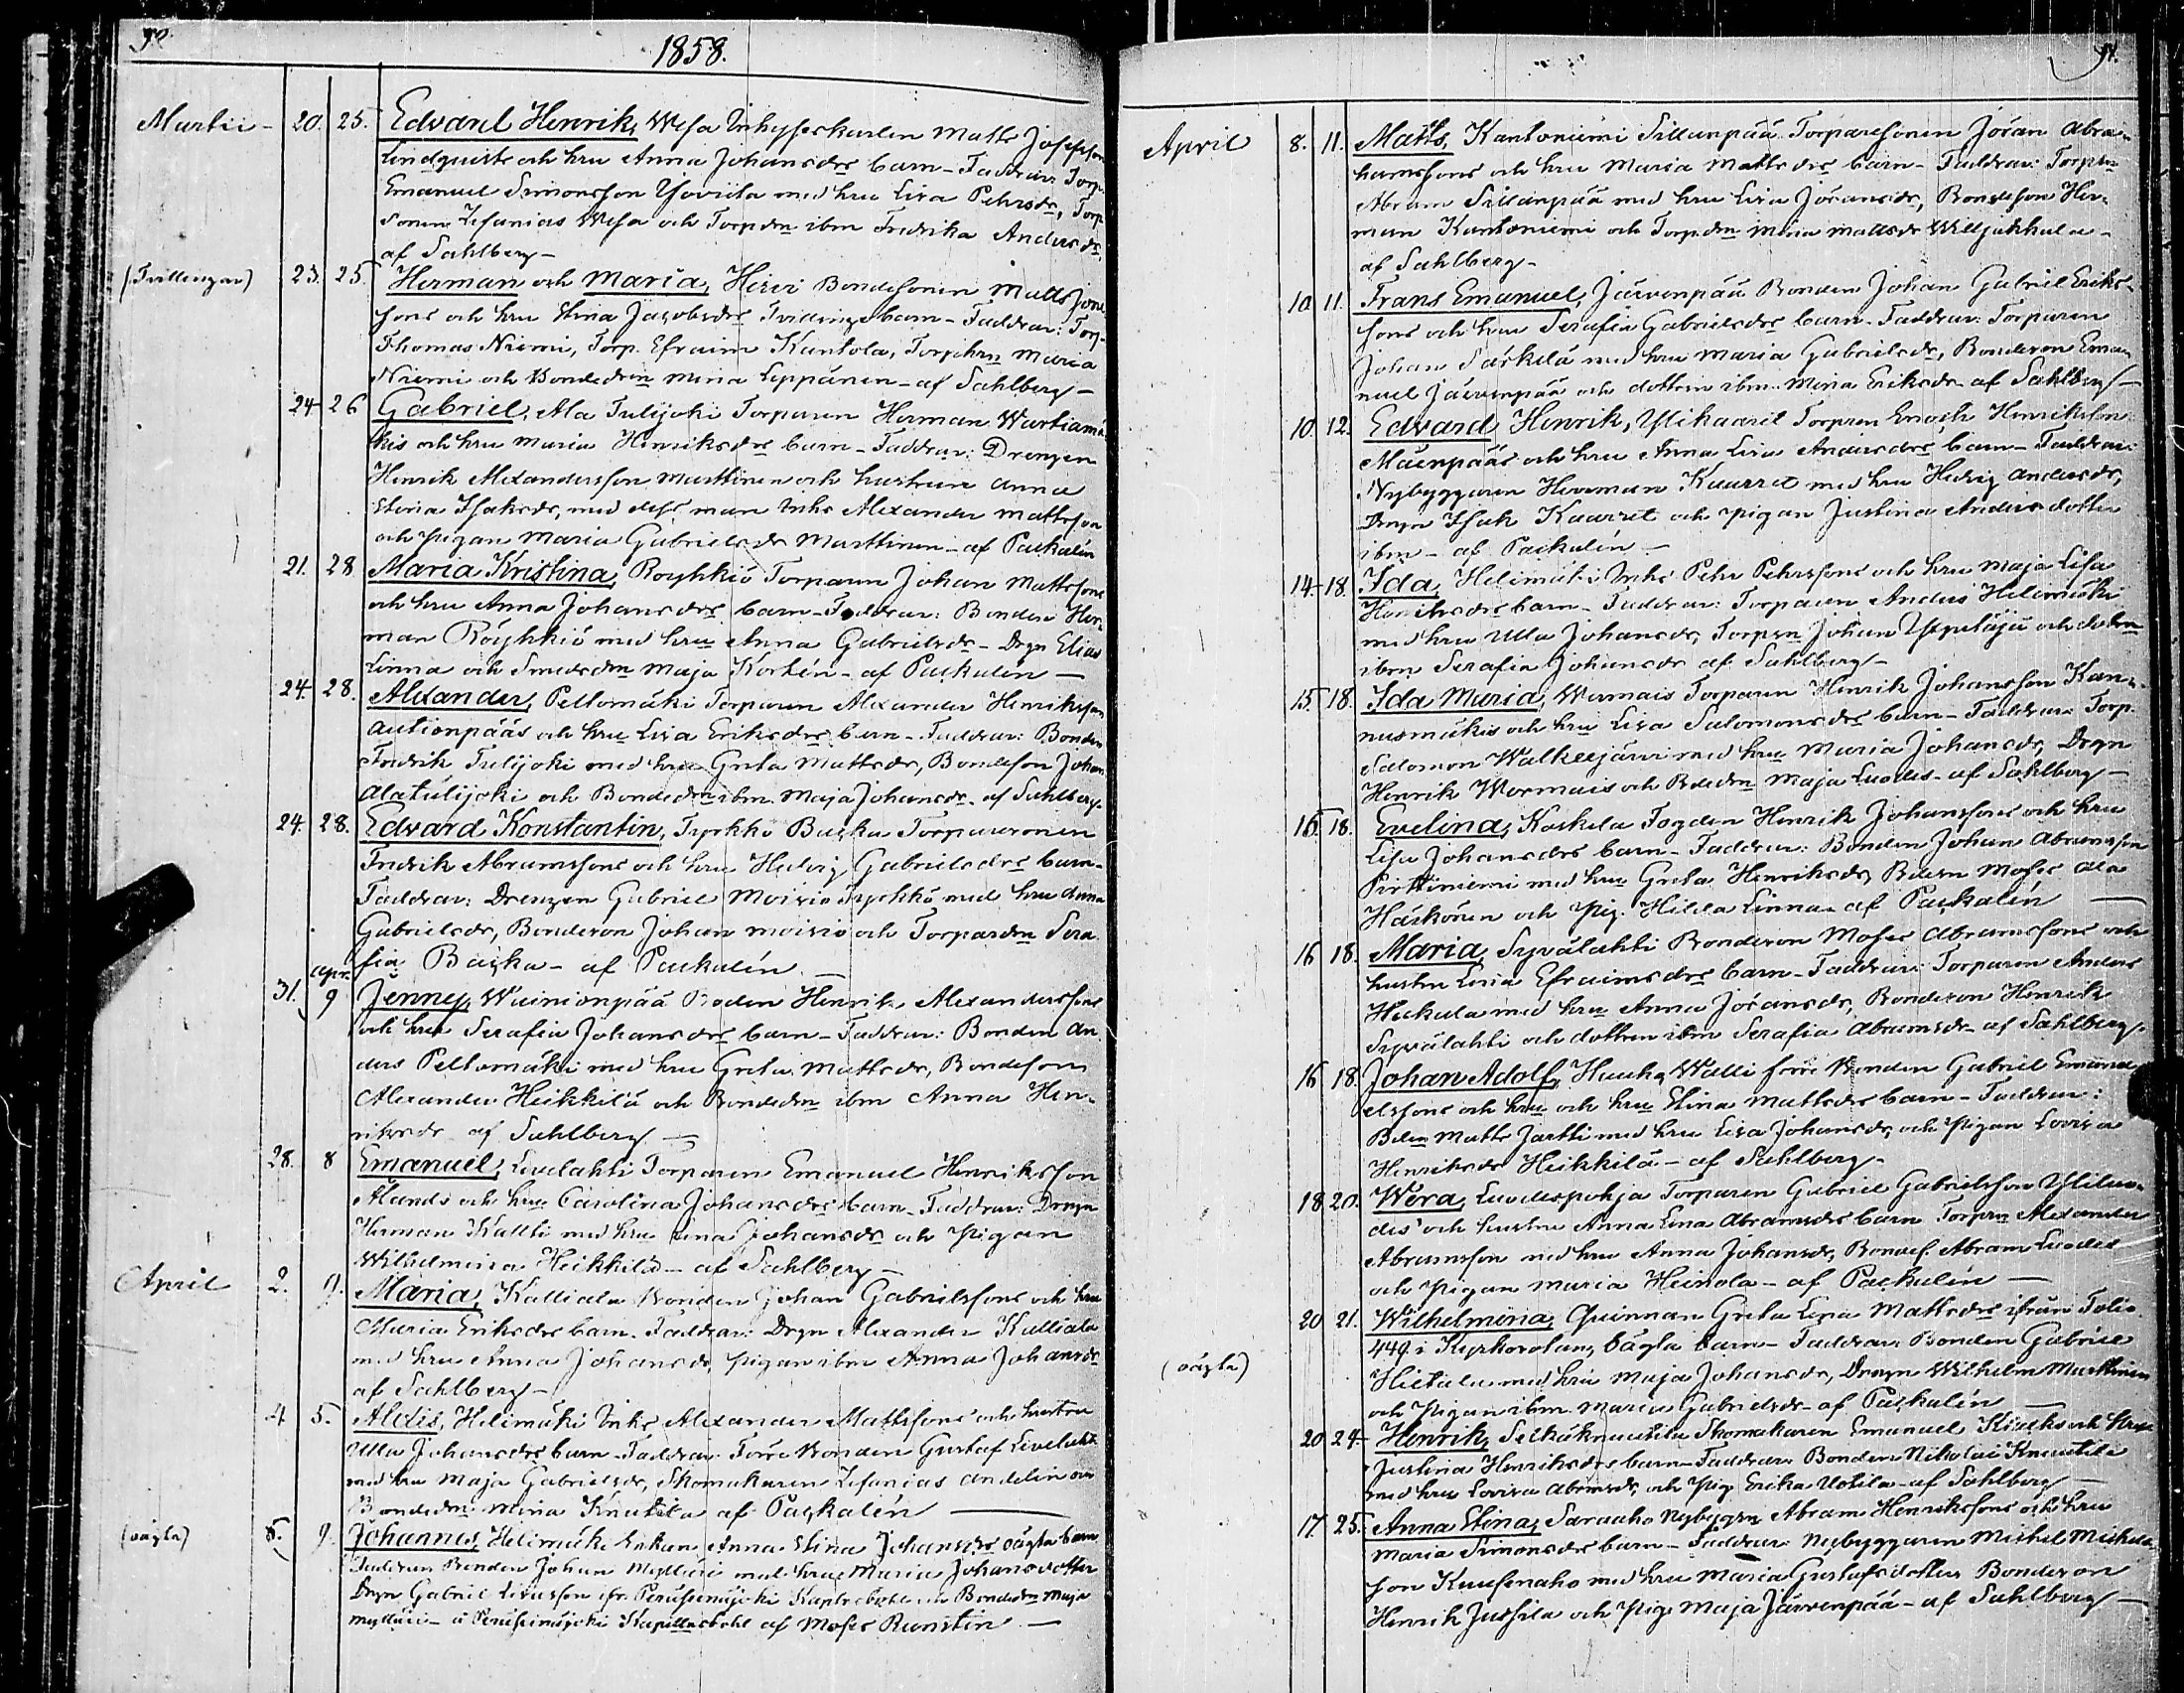 90.
1858.
Martii - 20. 25. Edvard Henrik, Wesa Inhyseskarlen Matts Josefsson
Lindquists och hru Anna Johansdrs barn - Faddrar: Torp.
Emanuel Simonsson Yoviita med hru Lisa Pehrsdr, Torp.
sonen Zefanias Wesa och Torpdrn ibm Fredrika Andersdr.
af Sahlberg -
(Tvillingar) 23. 25. Herman och Maria, Hirvi Bondesonen Matts
sons och hru Stina Jacobsdrs Tvillingebarn - Faddrar: Torp.
Thomas Niemi, Torp. Efraim Kantola, Torphrn Maria
Niemi och Bondedrn Mina Leppänen - af Sahlberg -
24. 26 Gabriel, Ala Tulijoki Torparen Herman Wartiamä-
kis och hru Maria Henriksdrs barn - Faddrar: Drengen
Henrik Alexandersson Marttinen och hustrun Anna
Stina Isaksdr, med dess man Inhs Alexander Mattsson
och Pigan Maria Gabrielsdr Marttinen - af Paskalén
21. 28 Maria Kristina, Röyhkiö Torparen Johan Mattssons
och hru Anna Johansdrs barn - Faddrar: Bonden Her-
man Röyhkiö med hru Anna Gabrielsdr - Drgn Elias
Linna och Smedsdrn Maja Kortén - af Paskalén -
24. 28. Alexander, Peltomäki Torparen Alexander Henriksson
Autionpääs och hru Lisa Eriksdrs barn - Faddrar: Bonden
Fredrik Tulijoki med hru Greta Mattsdr, Bondeson Johan
Alatulijoki och Bondedrn ibm Maja Johansdr. af Sahlberg -
24. 28. Edvard Konstantin, Tyrkkö Baska Torparesonen
Fredrik Abramssons och hru Hedvig Gabrielsdrs barn -
Faddrar: Drengen Gabriel Moisio Tyrkkö med hru Anna
Gabrielsdr, Bondeson Johan Moisio och Torpardrn Sera-
fia Baska - af Paskalén. -
31. Apr. 9 Jenny, Wainionpää Bonden Henrik Alexanderssons
och hru Serafia Johansdrs barn - Faddrar: Bonden An-
ders Peltomäki med hru Greta Mattsdr, Bondeson
Alexander Heikkilä och Bondedrn ibm Anna Hen-
riksdr af Sahlberg -
28. 8 Emanuel, Livelahti Torparen Emanuel Henriksson
Ålands och hru Carolina Johansdrs barn - Faddrar: Drgn
Herman Kallti med hru Lena Johansdr och Pigan
Wilhelmina Heikkilä - af Sahlberg -
April 2. 9. Maria, Kalliala Bonden Johan Gabrielssons och hru
Maria Eriksdrs barn. Faddrar: Drgn Alexander Kalliala
med hru Anna Johansdr, Pigan ibm Anna Johansdr
af Sahlberg -
4 5. Alexis, Helimäki Inhs Alexander Mattssons och hustru
Ulla Johansdrs barn - Faddrar: Förre Bonden Gustaf Livelahti
med hru Maja Gabrielsdr, Skomakaren Zefanias Andelin och
Bondedrn Mina Knutila af Paskalén -
(oägta) 5. 9. Johannes, Helimäki Enkan Anna Stina Johansdrs oägta barn
Faddrar Bonden Johan Mylläri med hru Maria Johansdotter
Drgn Gabriel ifr. Peräseinäjoki Kapelsbohl och Bondedrn Maja
Mylläri - i Peräseinäjoki Kapellsbohl af Moses Runstin -
91.
April 8. 11. Matts, Kantoniemi Sillanpää Torparesonen Jöran Abra-
hamssons och hru Maria Mattsdrs barn - Faddrar: Torprn
Abram Sillanpää med hru Lisa Jöransdr, Bondeson Her-
man Kantoniemi och Torpdrn Mina Mattsdr Williakkala -
af Sahlberg -
10. 11. Frans Emanuel, Järvenpää Bonden Johan Gabriel Eriks-
sons och hru Serafia Gabrielsdrs barn - Faddrar: Torparen
Johan Säskilä med hru Maria Gabrielsdr, Bondeson Ema-
nuel Järvenpää och dottren ibm Mina Eriksdr af Sahlberg -
10. 12. Edvard Henrik, Ylikaaret Torpren Enoch Henriksson
Mäenpääs och hru Anna Lisa Andersdrs barn - Faddrar:
Nybyggaren Herman Kaarret med hru Hedvig Andersdr,
Drgn Isak Kaarret och Pigan Justina Andersdotter
ibm - af Paskalén -
14. 18. Ida, Helimäki Inhs Pehr Pehrssons och hru Maja Lisa
Henriksdrs barn - Faddrar: Torparen Anders Helimäki
med hru Ulla Johansdr, Torpsn Johan och dotren
ibm Serafia Johansdr af Sahlberg -
15. 18. Ida Maria, Wermais Torparen Henrik Johansson Kan-
nusmäkis och hru Lisa Salomonsdrs barn - Faddrar: Torp.
Salomon Walkeejärvi med hru Maria Johansdr, Drgn
Henrik Wermais och Bdedrn Maja Luodes - af Sahlberg -
16. 18. Evelina, Koskela Fogden Henrik Johanssons och hru
Lisa Johansdrs barn - Faddrar: Bonden Johan Abramsson
Pirttiniemi med hru Greta Henriksdr, Bdesn Moses Ala
Häskönen och Pig. Hilda Linna af Paskalén -
16 18. Maria, Syvälahti Bondeson Moses Abramssons och
hustru Lisa Efraimsdrs barn - Faddrar: Torparen Anders
Hakala med hru Anna Jöransdr, Bondeson Henrik
Syvälahti och dottren ibm Serafia Abramsdr af Sahlberg.
16 18. Johan Adolf, Hauka Walli förre Bonden Gabriel Emanu-
elssons och hru och hru Stina Mattsdrs barn - Faddrar:
Bden Matts Jartti med hru Lisa Johansdr, och Pigan Lovisa
Henriksdr Heikkilä - af Sahlberg -
18 20. Wera, Luodespohja Torparen Gabriel Gabrielsson Yliluo-
des och hustru Anna Lena Abramsdrs barn Torprn Alexander
Abramsson med hru Anna Johansdr, Bondes. Abram Luodes
och Pigan Maria Heinola - af Paskalén -
(oägta) 20 21. Wilhelmina, Quinnan Greta Lena Mattsdrs ifrån Folio
449 i Kyrkorolan, oägta barn - Faddrar Bonden Gabriel
Hietala med hru Maja Johansdr, Drgn Wilhelm Marttinen
och Pigan ibm Maria Gabrielsdr af Paskalén -
20 24. Henrik, Seikäknuutila Skomakaren Emanuel och hru
Justina Henriksdrs barn - Faddrar Bonden Nikolai Knuutila
med hru Lovisa Abramsdr, och Pig. Erika Uotila - af Sahlberg -
17 25. Anna Stina, Saraaho Nybyggrn Abram Henrikssons och hru
Maria Simonsdrs barn - Faddrar: Nybyggaren Michel Michels-
son Kuusenaho med hru Maria Gustafsdotter Bondeson
Henrik Jussila och Pig. Maja Järvenpää - af Sahlberg -